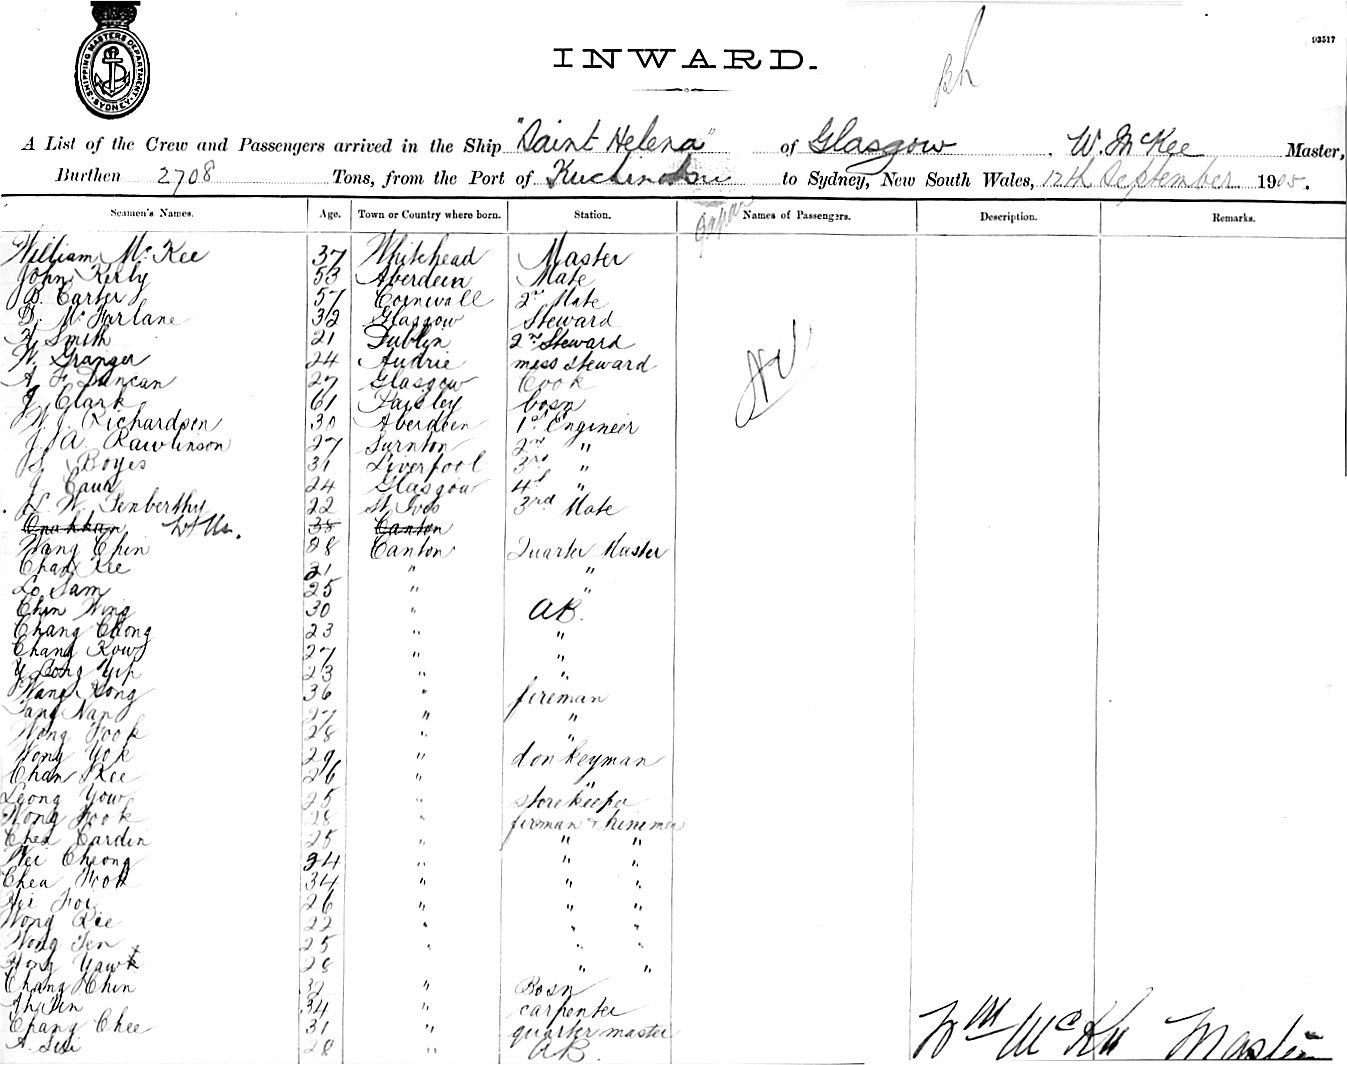 SHIPPING MASTERS DEPARTMENT SYDNEY
93517
INWARD.
A List of the Crew and Passengers arrived in the Ship "Saint Helena" of Glasgow, W. McKee Master,
Burthen 2708 Tons, from the Port of Kuchinotsu to Sydney, New South Wales, 12th September 1905.
Japan
Seamen's Names. Age. Town or Country where born. Station. Names of Passengers. Description. Remarks.
William McKee 37 Whitehead Master
John Kerly 53 Aberdeen Mate
B. Carter 57 Cornwall 2nd Mate
McFarlane 32 Glasgow Steward
Smith 21 Dublin 2nd Steward
W. Granger 24 Airdrie mess steward
A F Duncan 27 Glasgow Cook
J Clark 61 Paisley bosn
W. J. Richardson 30 Aberdeen 1st Engineer
J. A. Rawlinson 27 2nd "
Boyes 31 Liverpool 3rd "
24 Glasgow 4th "
W. Penberthy 22 St Ives 3rd Mate
38 Canton
Wang Chin 28 Canton Quarter Master
Chan Kee 21 " "
Lo Sam 25 " "
Chin Wing 30 " AB.
Chang Chong 23 " "
Chang Kow 27 " "
Y Long Yip 23 " "
Wang Kong 36 " fireman
Tang Nap 27 " "
Wong Fook 28 " "
Wong Yok 29 " donkeyman
Chan Kee 26 " "
Leong Yow 25 " storekeeper
Wong Fook 28 " fireman &
Chea Cardin 25 " " "
Wei Cheong 24 " " "
Chea Fook 34 " " "
Foi 26 " " "
Wong Kee 22 " " "
Wong Ten 25 " " "
Hong Yawk 28 " "
Chang Chin 32 " Bosn
34 " carpenter
Chang Chee 31 " quarter master
A. Sui 28 " AB.
Wm McKee Master